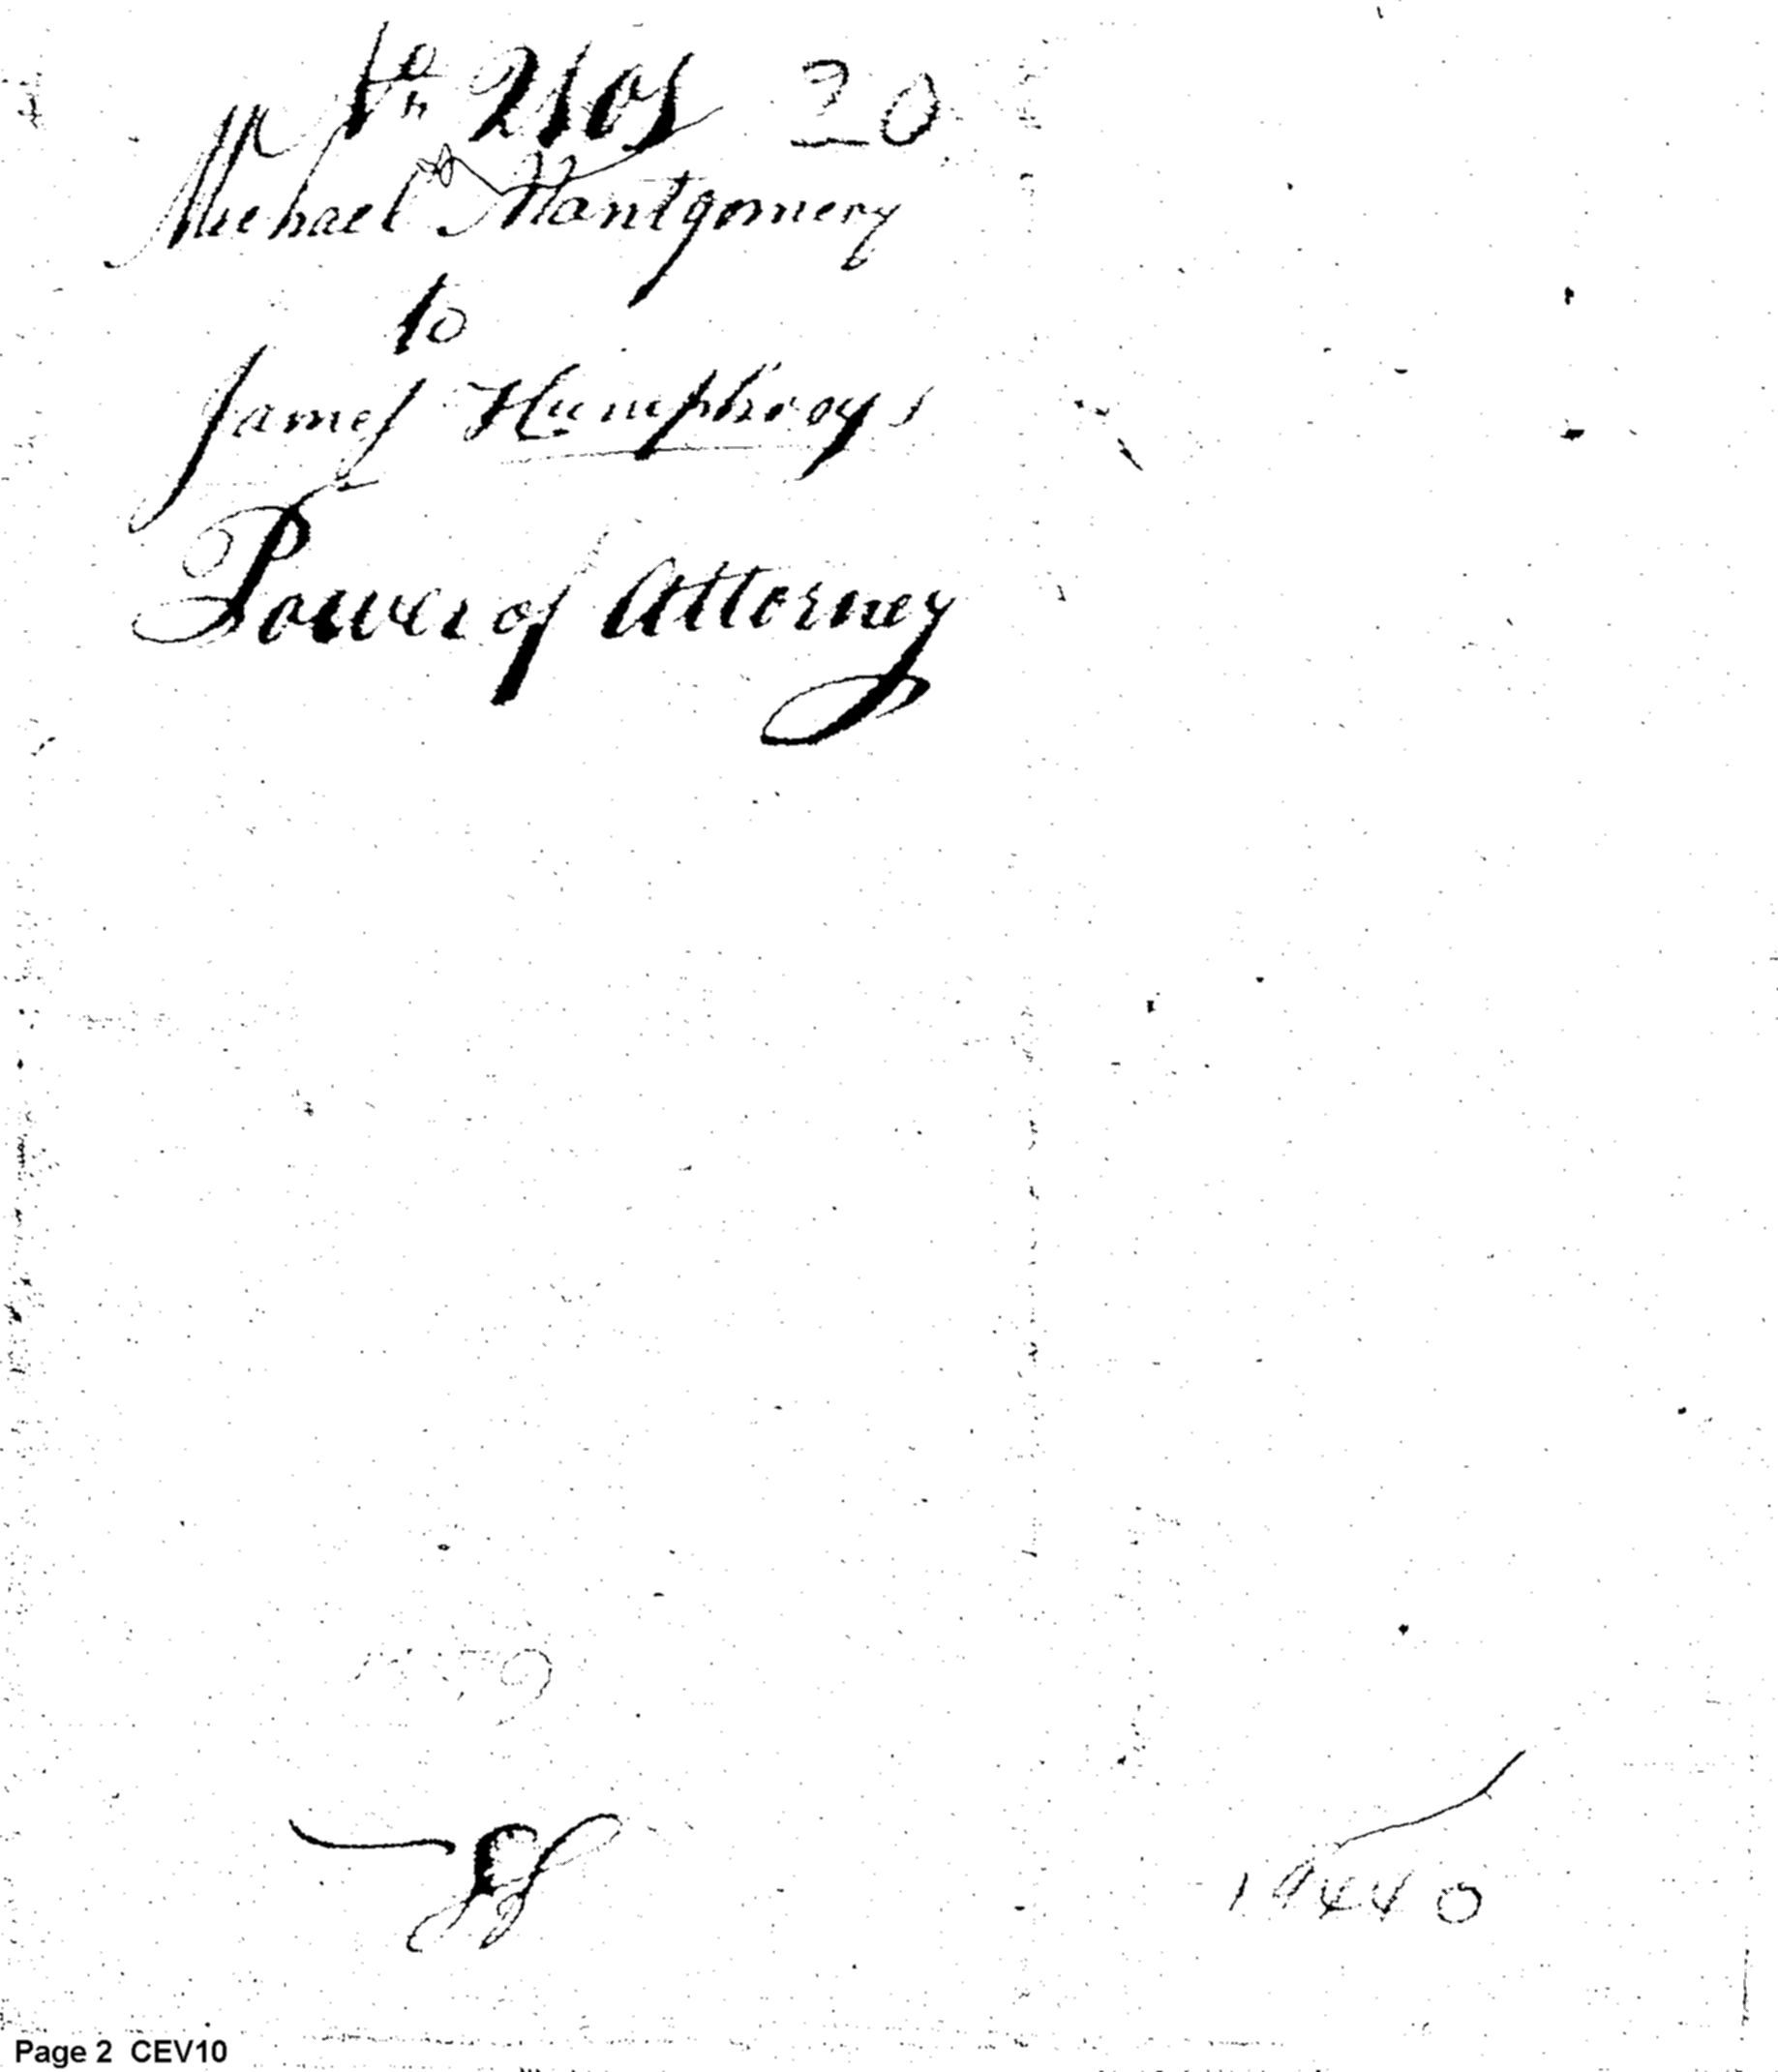 2105 20
Michael Montgomery
to
James Humphreys
Power of Attorney
Page 2 CEV10